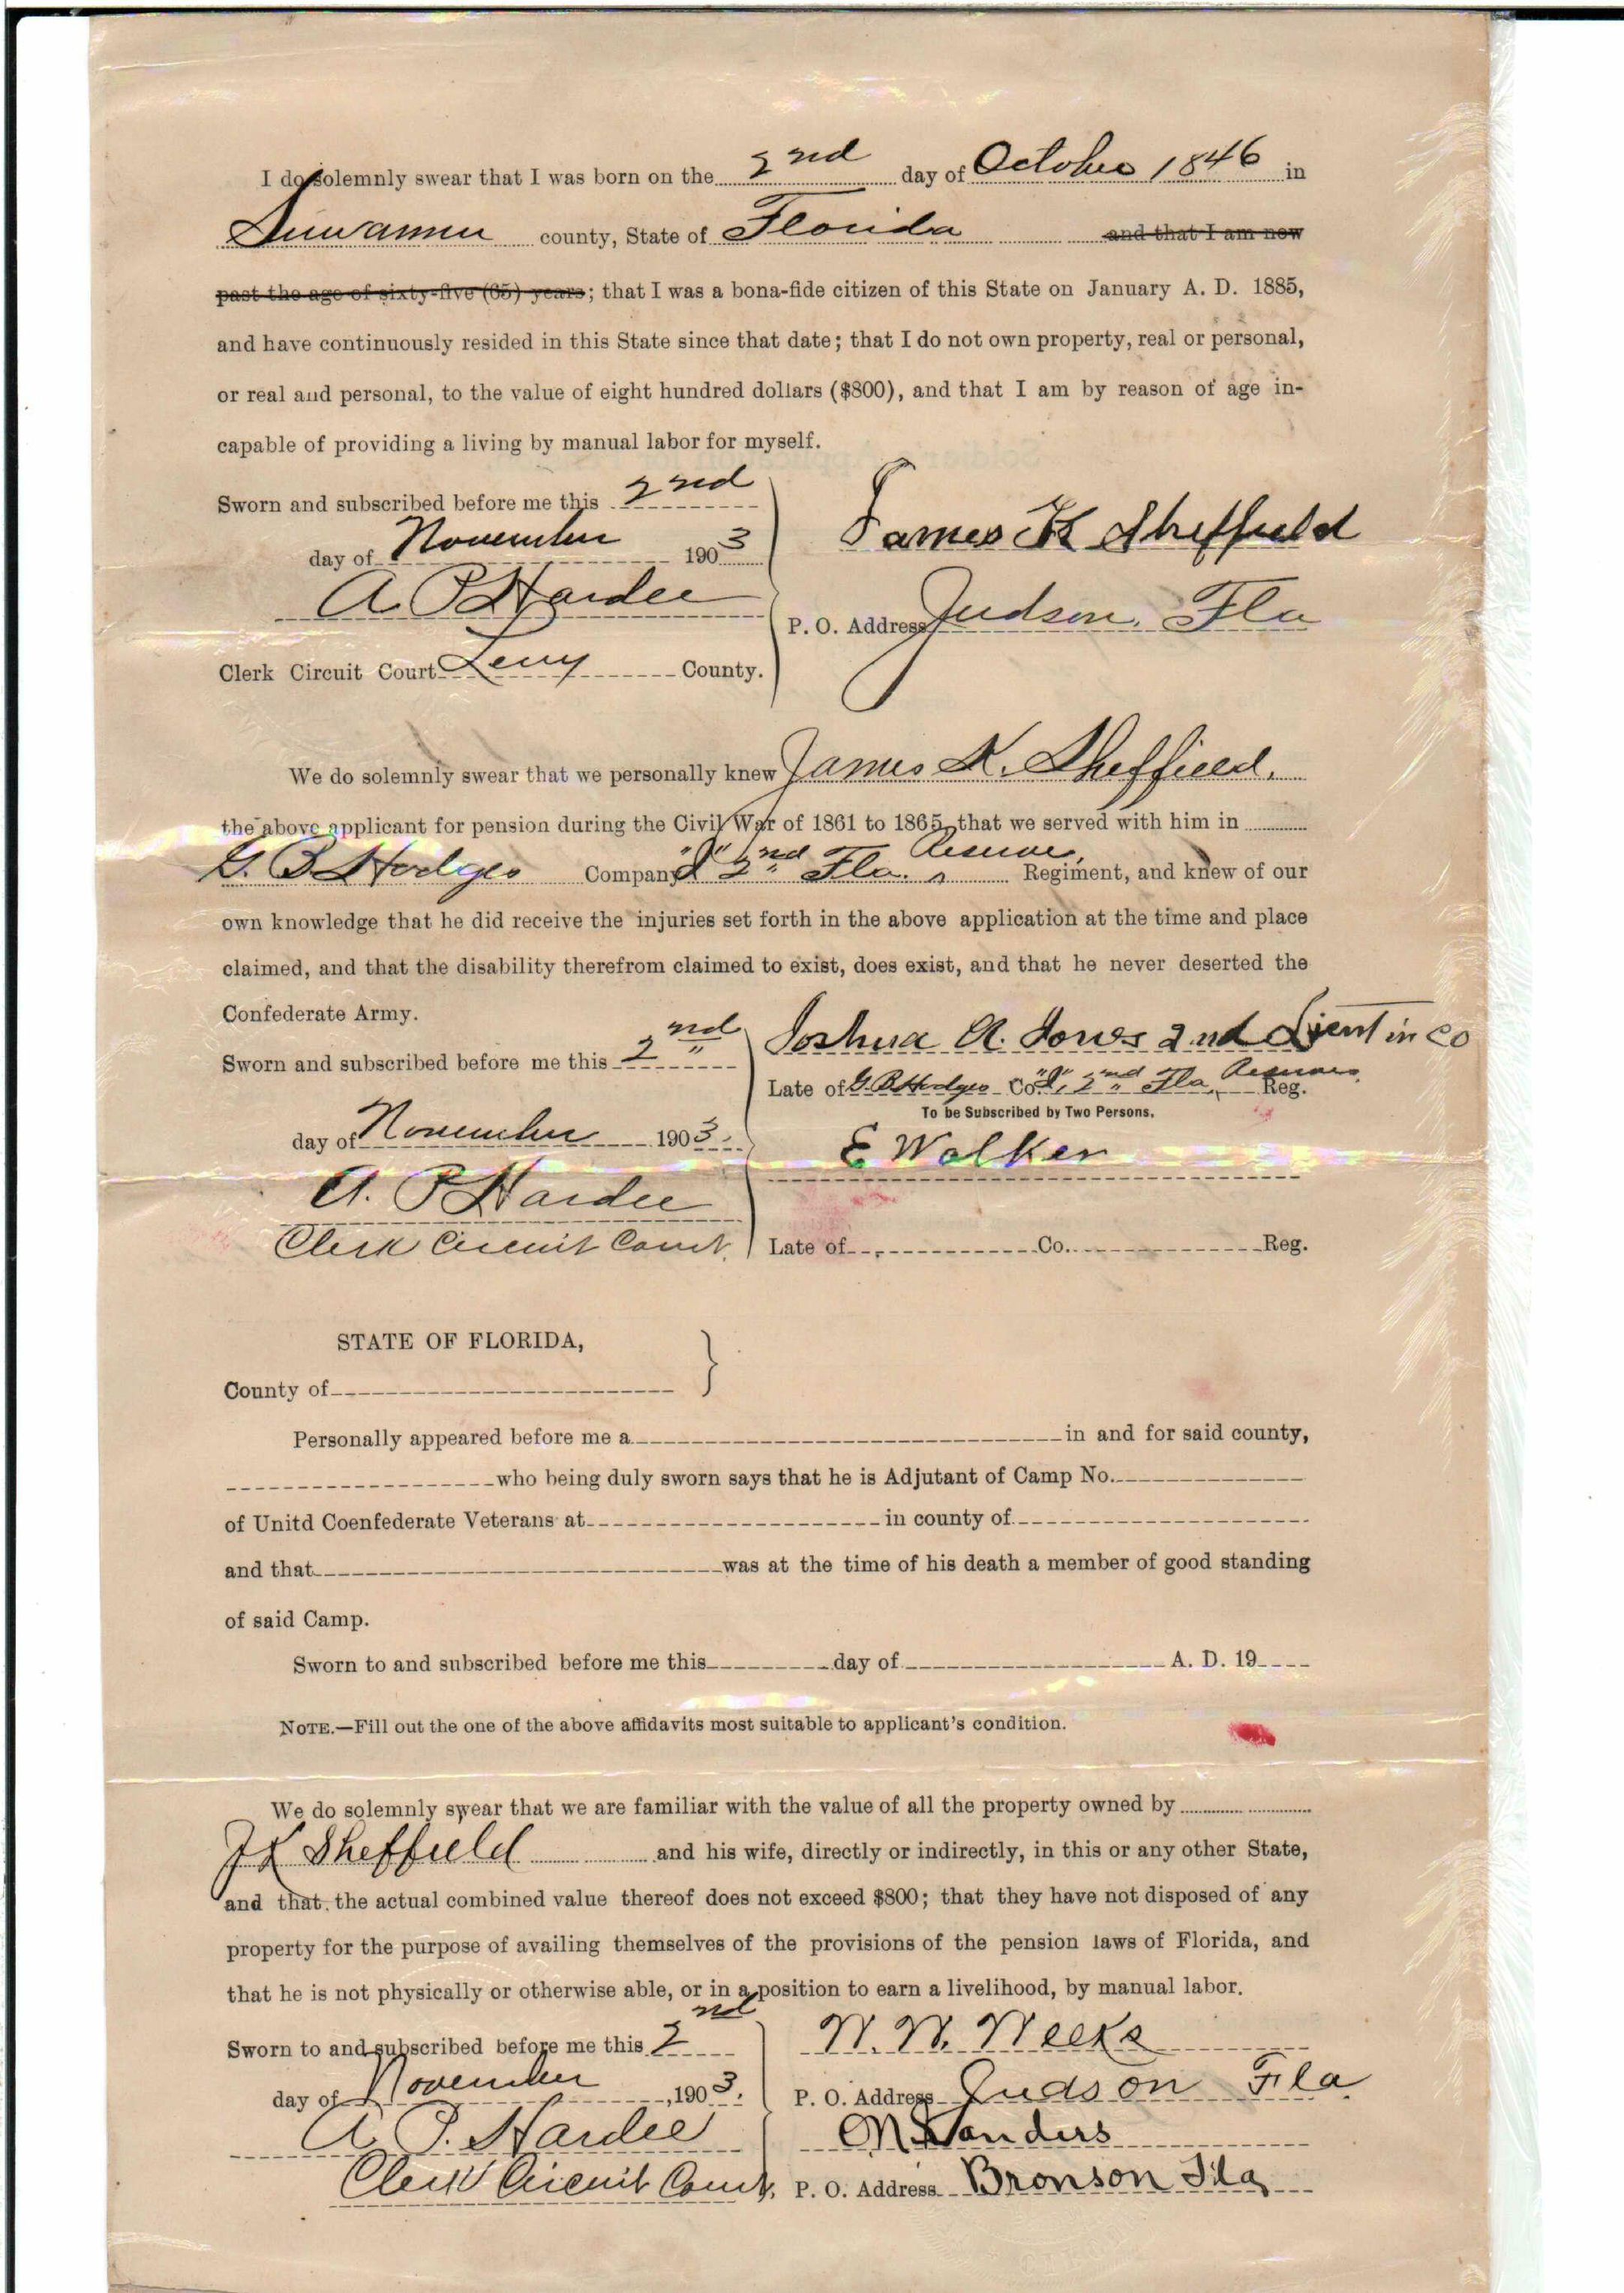 I do solemnly swear that I was born on the 2nd day of October 1846 in
Suwannee county, State of Florida and that I am now
past the age of sixty-five (65) years; that I was a bona-fide citizen of this State on January A. D. 1885,
and have continuously resided in this State since that date; that I do not own property, real or personal,
or real and personal, to the value of eight hundred dollars ($800), and that I am by reason of age in-
capable of providing a living by manual labor for myself.
Sworn and subscribed before me this 2nd
day of November 1903
James K Sheffield
A. P. Hardee
P. O. Address Judson, Fla
Clerk Circuit Court Levy County.
We do solemnly swear that we personally knew James K. Sheffield,
the above applicant for pension during the Civil War of 1861 to 1865, that we served with him in
G. B. Hodges Company 2nd Fla. Reserve Regiment, and knew of our
own knowledge that he did receive the injuries set forth in the above application at the time and place
claimed, and that the disability therefrom claimed to exist, does exist, and that he never deserted the
Confederate Army.
Sworn and subscribed before me this 2nd
Joshua A. Jones 2nd Lieut in Co
Late of G B Hodges Co. 2nd Fla, Reserves Reg.
To be Subscribed by Two Persons.
day of November 1903.
E Walker
A. P. Hardee
Clerk Circuit Court.
Late of Co. Reg.
STATE OF FLORIDA,
County of
Personally appeared before me a in and for said county,
who being duly sworn says that he is Adjutant of Camp No.
of Unitd Coenfederate Veterans at in county of
and that was at the time of his death a member of good standing
of said Camp.
Sworn to and subscribed before me this day of A. D. 19
NOTE.—Fill out the one of the above affidavits most suitable to applicant's condition.
We do solemnly swear that we are familiar with the value of all the property owned by
J K Sheffield and his wife, directly or indirectly, in this or any other State,
and that the actual combined value thereof does not exceed $800; that they have not disposed of any
property for the purpose of availing themselves of the provisions of the pension laws of Florida, and
that he is not physically or otherwise able, or in a position to earn a livelihood, by manual labor.
Sworn to and subscribed before me this 2nd
W. W. Weeks
day of November, 1903.
P. O. Address Judson Fla.
A. P. Hardee
Sanders
Clerk Circuit Court.
P. O. Address Bronson Fla